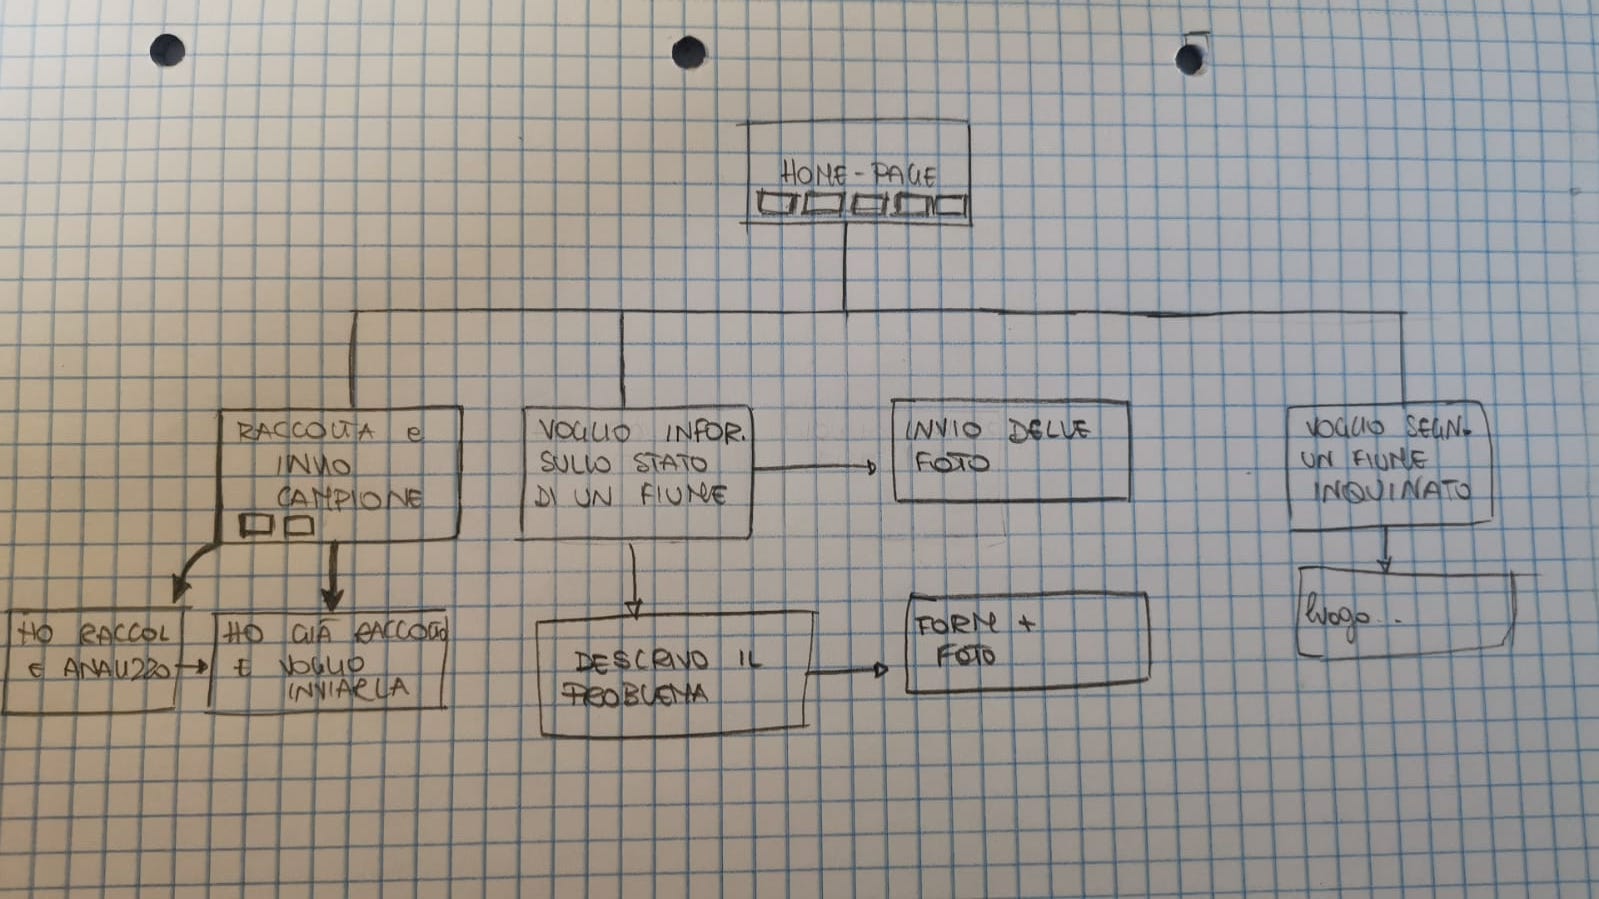 HOME-PAGE
RACCOLTA e
INVIO
CAMPIONE
VOGLIO INFOR.
SULLO STATO
DI UN FIUME
INVIO DELLE
FOTO
VOGLIO SEGN.
UN FIUME
INQUINATO
HO RACCOL
E ANALIZZO
HO GIÀ RACCOLTO
E VOGLIO
INVIARLA
DESCRIVO IL
PROBLEMA
FORM +
FOTO
luogo...